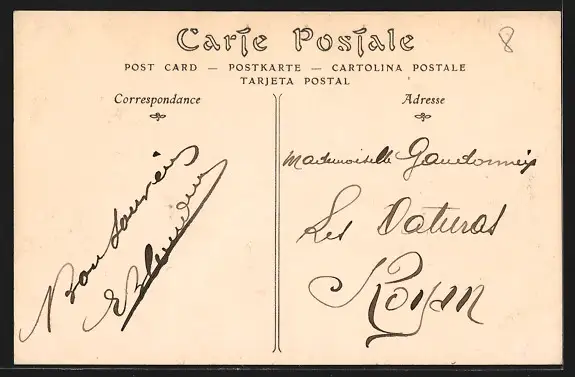 Carte Postale
8
POST CARD — POSTKARTE — CARTOLINA POSTALE
TARJETA POSTAL
Correspondance
Adresse
Bon souvenir
Mademoiselle
Les Daturas
Royan